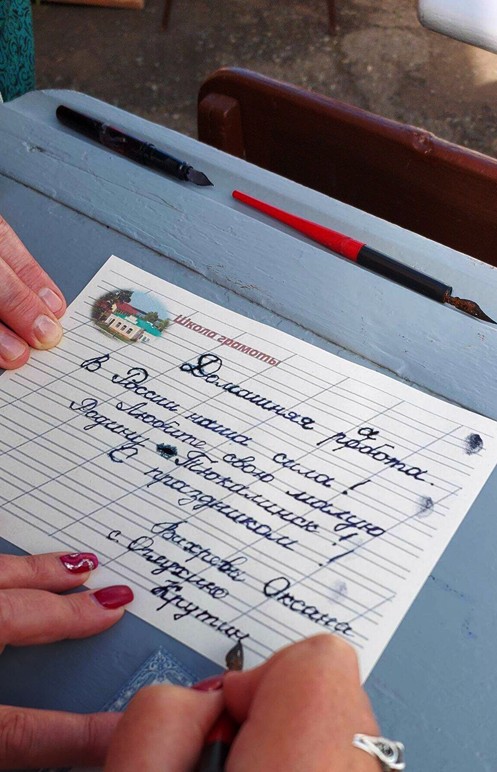 Школа грамоты
Домашняя работа.
В России наша сила!
Любите свою малую
Родину Тюкалинск!
С праздником!
Оксана
с.
Крутин